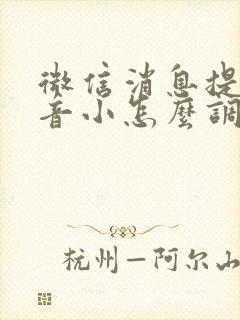 微信消息提
音小怎麼調
杭州—阿尔山